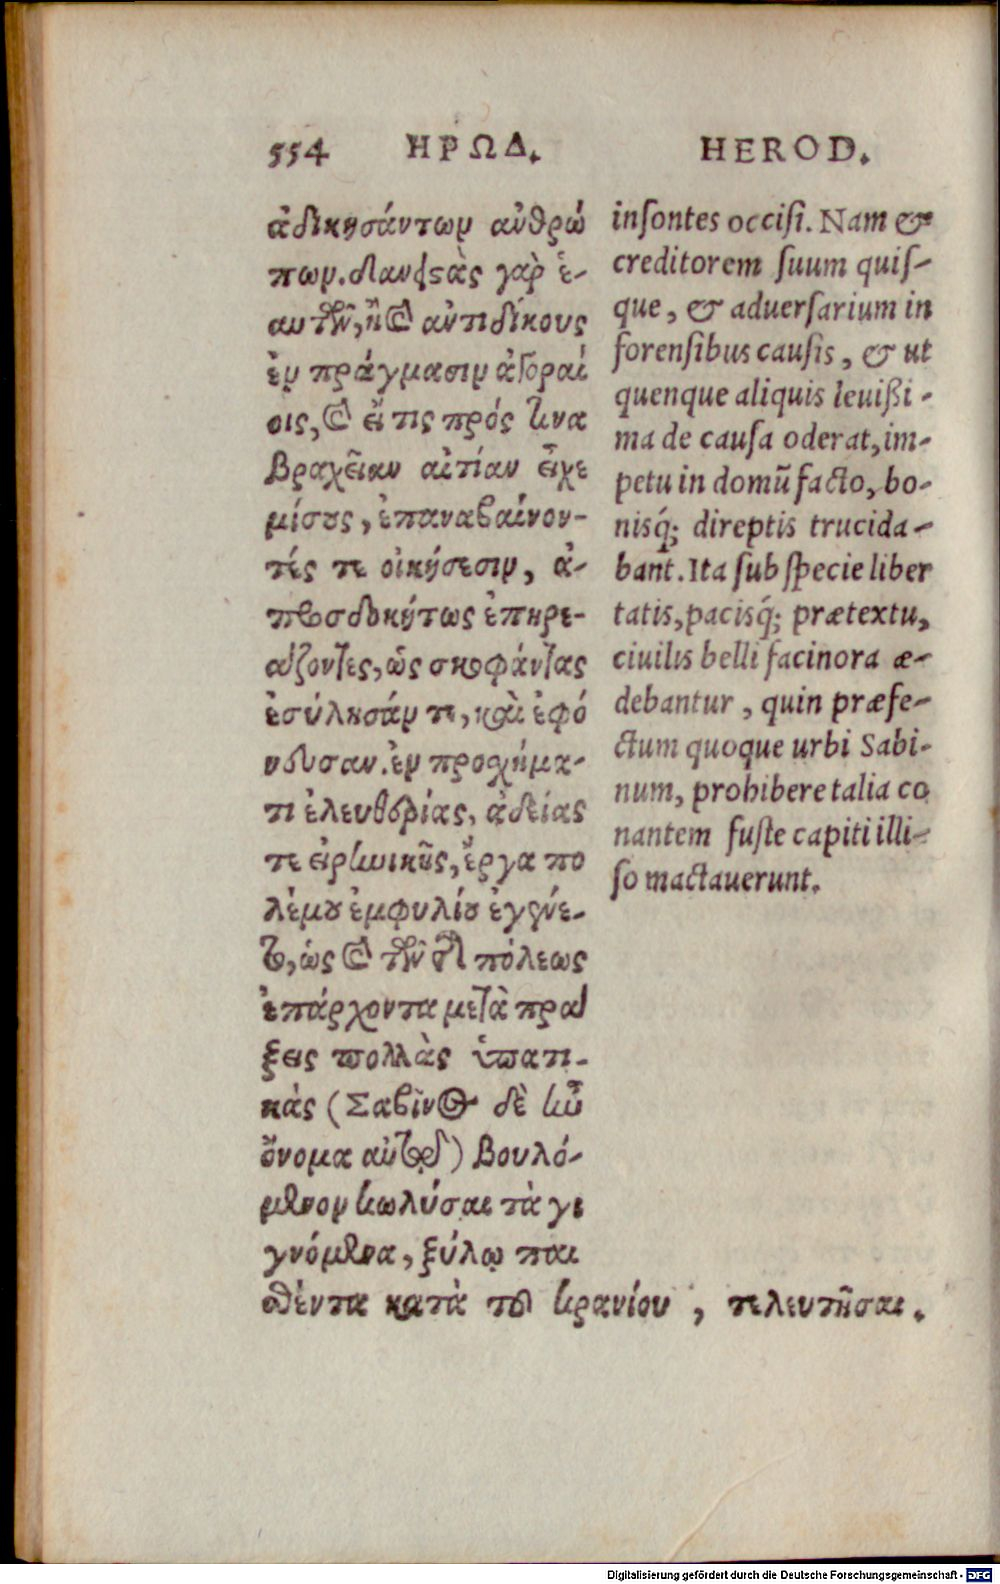 554 ΗΡΩΔ. HEROD.
ἀδικησάντων ἀνθρώ
πων. δανειστὰς γὰρ ἑ-
αυτῶν, ἢ καὶ ἀντιδίκους
ἐν πράγμασιν ἀγοραί
οις, καὶ εἴ τις πρός τινα
βραχεῖαν αἰτίαν εἶχε
μίσους, ἐπαναβαίνον-
τές τε οἰκήσεσιν, ἀ-
προσδοκήτως ἐπηρε-
άζοντες, ὡς συκοφάντας
ἐσύλησάν τι, καὶ ἐφό
νευσαν. ἐν προσχήμα-
τι ἐλευθερίας, ἀδείας
τε εἰρηνικῆς, ἔργα πο
λέμου ἐμφυλίου ἐγίνε-
το, ὡς καὶ τὸν τῆς πόλεως
ἐπάρχοντα μετὰ πρά
ξεις πολλὰς ὑπατι-
κάς (Σαβῖνος δὲ ἦν
ὄνομα αὐτῷ) βουλό-
μενον κωλύσαι τὰ γι
γνόμενα, ξύλῳ παι
σθέντα κατὰ τοῦ κρανίου, τελευτῆσαι.
insontes occisi. Nam &
creditorem suum quis-
que, & aduersarium in
forensibus causis, & ut
quenque aliquis leuißi-
ma de causa oderat, im-
petu in domũ facto, bo-
nisq́; direptis trucida-
bant. Ita sub specie liber
tatis, pacisq́; prætextu,
ciuilis belli facinora æ-
debantur, quin præfe-
ctum quoque urbi Sabi-
num, prohibere talia co
nantem fuste capiti illi-
so mactauerunt.
Digitalisierung gefördert durch die Deutsche Forschungsgemeinschaft - DFG